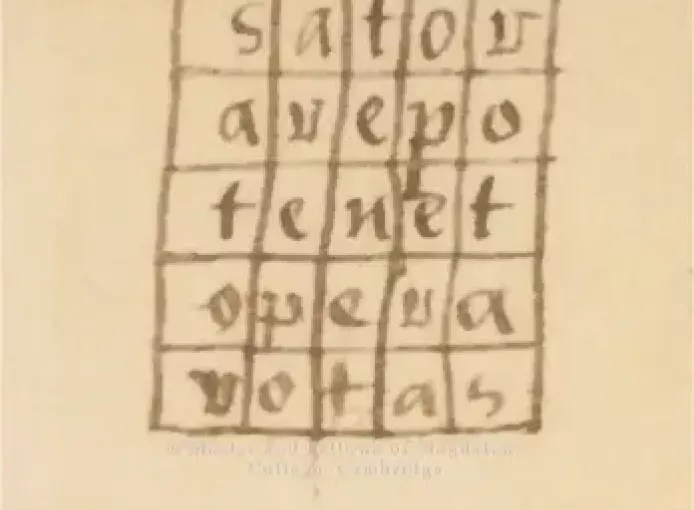 s a t o r
a r e p o
t e n e t
o p e r a
r o t a s
© Master and Fellows of Magdalene
College Cambridge